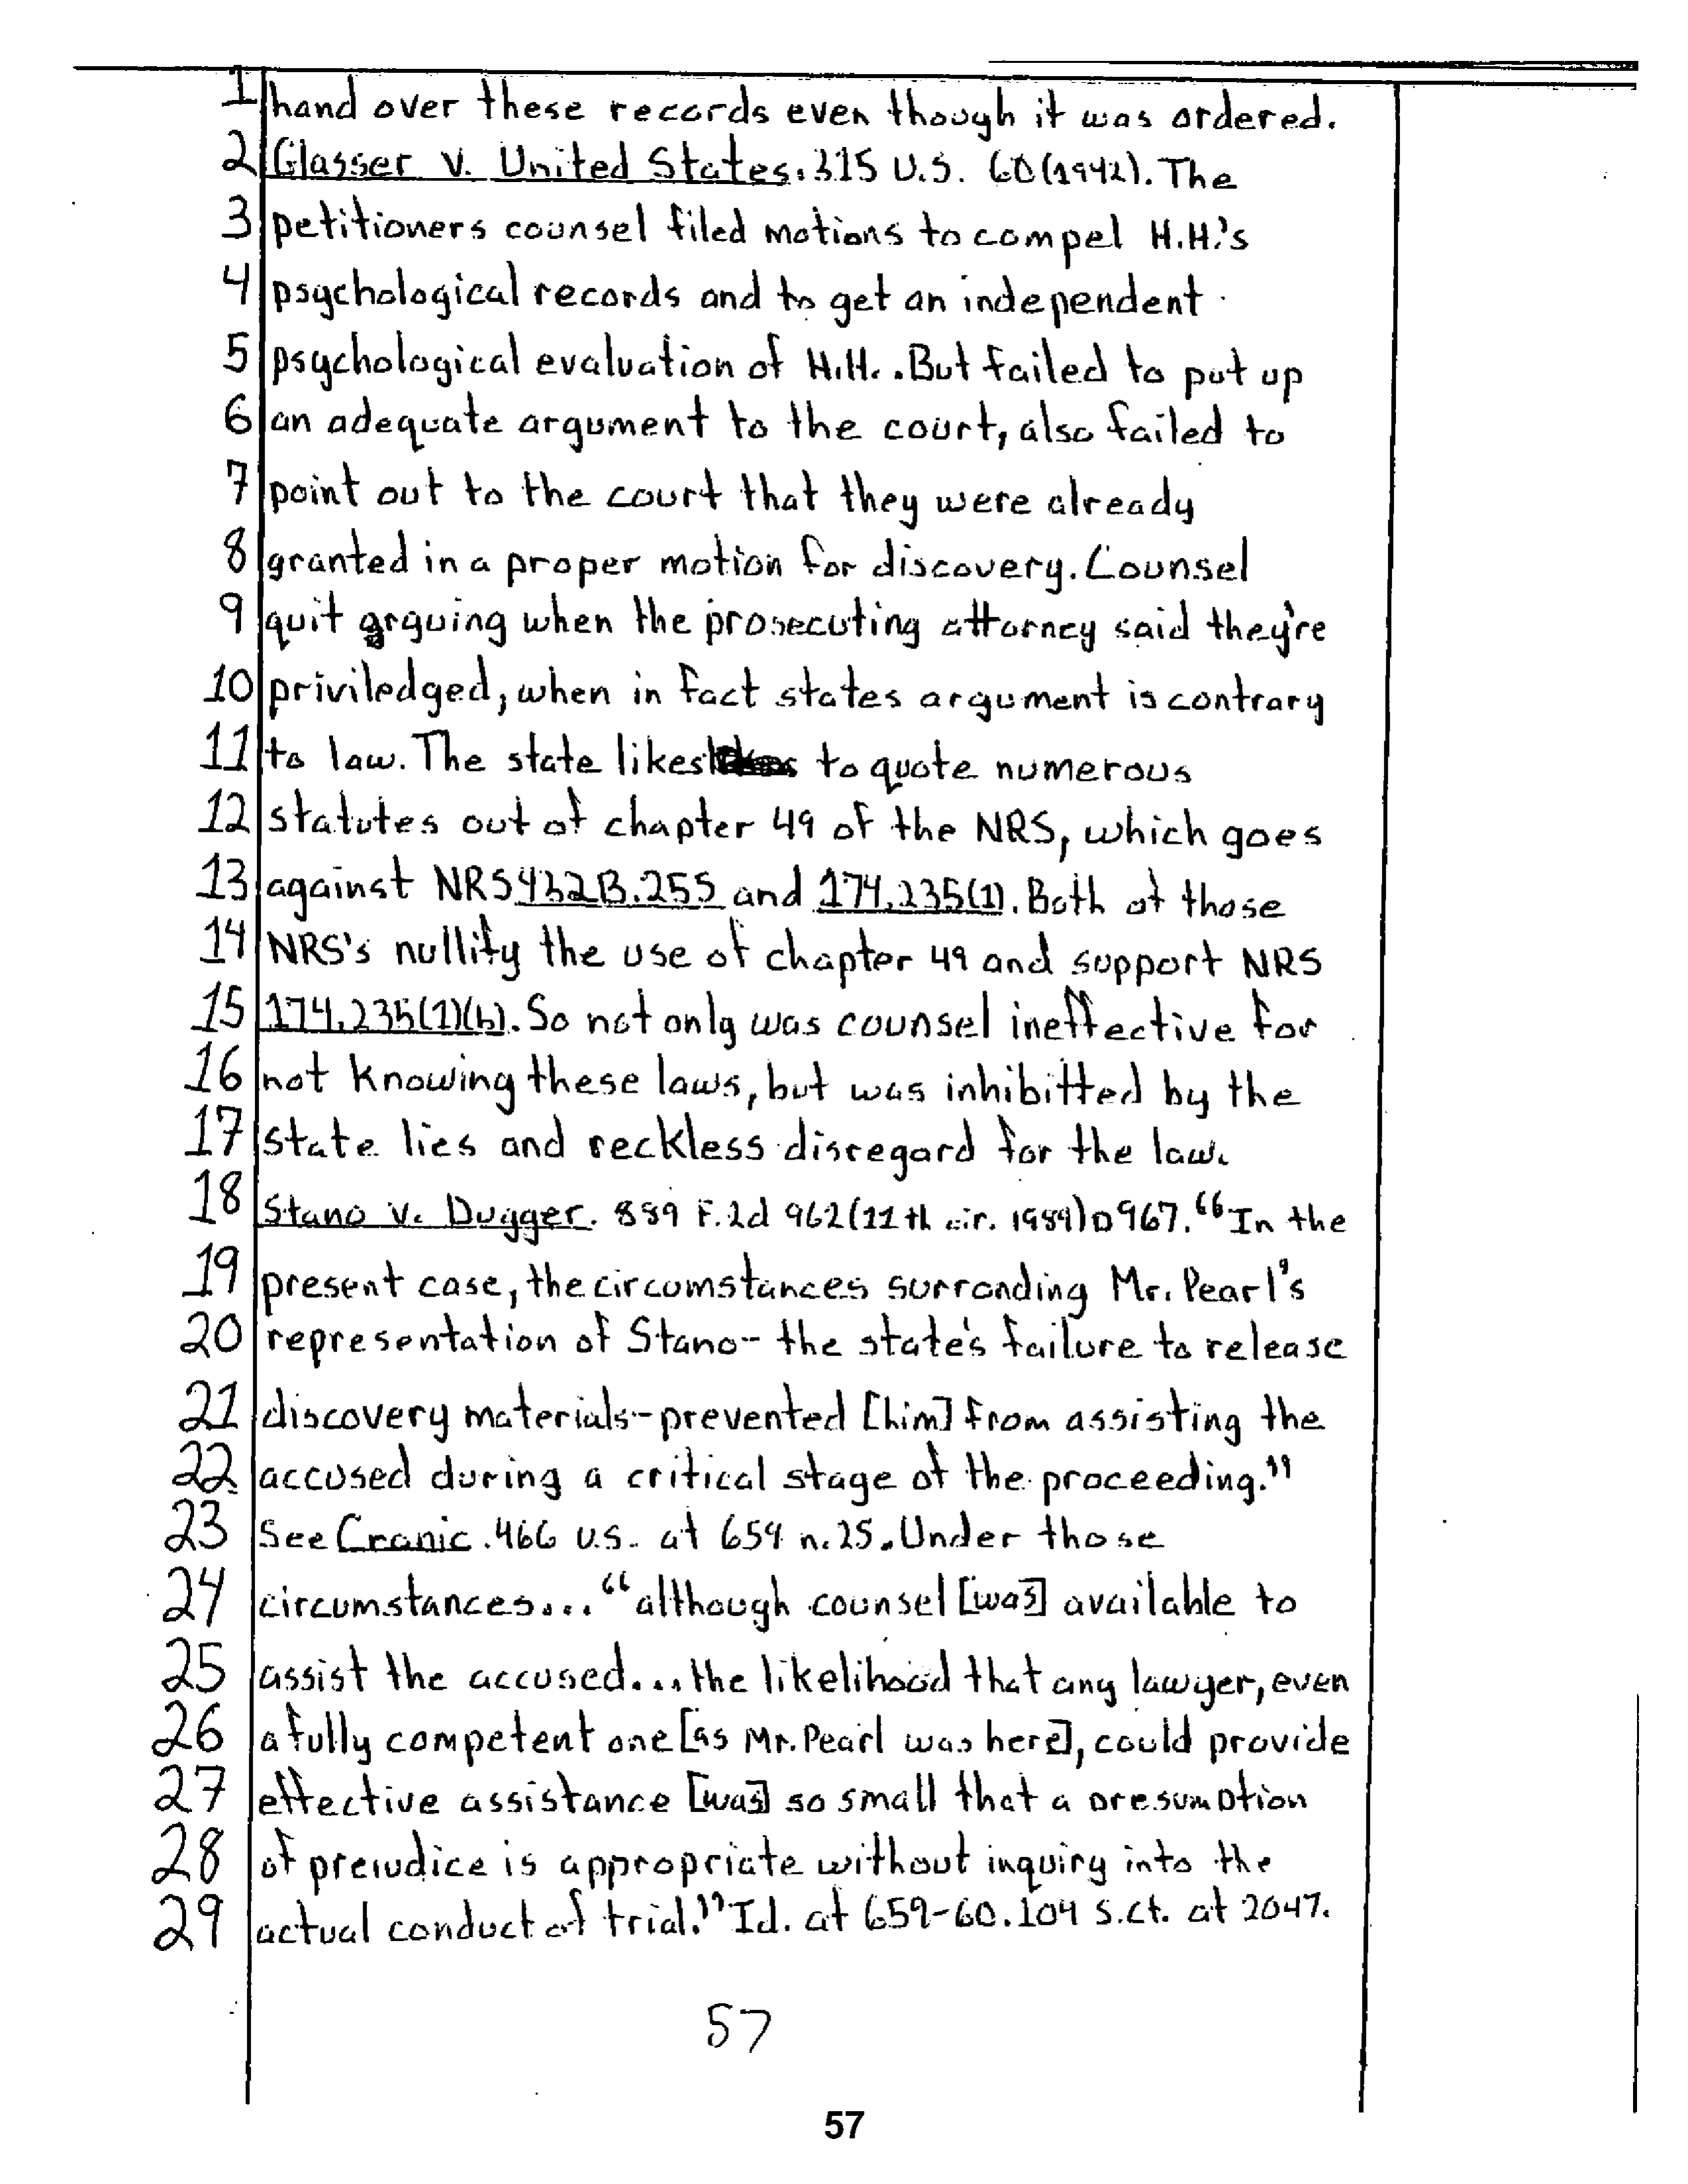 1 hand over these records even though it was ordered.
2 Glasser v. United States. 315 U.S. 60 (1942). The
3 petitioners counsel filed motions to compel H.H.'s
4 psychological records and to get an independent
5 psychological evaluation of H.H.. But failed to put up
6 an adequate argument to the court, also failed to
7 point out to the court that they were already
8 granted in a proper motion for discovery. Counsel
9 quit arguing when the prosecuting attorney said they're
10 priviledged, when in fact states argument is contrary
11 to law. The state likes to quote numerous
12 statutes out of chapter 49 of the NRS, which goes
13 against NRS 432B.255 and 174.235(1). Both of those
14 NRS's nullify the use of chapter 49 and support NRS
15 174.235(1)(b). So not only was counsel ineffective for
16 not knowing these laws, but was inhibitted by the
17 state lies and reckless disregard for the law.
18 Stano v. Dugger. 889 F.2d 962 (11th cir. 1989) p967. "In the
19 present case, the circumstances surronding Mr. Pearl's
20 representation of Stano-- the state's failure to release
21 discovery materials--prevented [him] from assisting the
22 accused during a critical stage of the proceeding."
23 See Cronic. 466 U.S. at 659 n.25. Under those
24 circumstances... "although counsel [was] available to
25 assist the accused... the likelihood that any lawyer, even
26 a fully competent one [as Mr. Pearl was here], could provide
27 effective assistance [was] so small that a presumption
28 of prejudice is appropriate without inquiry into the
29 actual conduct of trial." Id. at 659-60. 104 S.ct. at 2047.
57
57